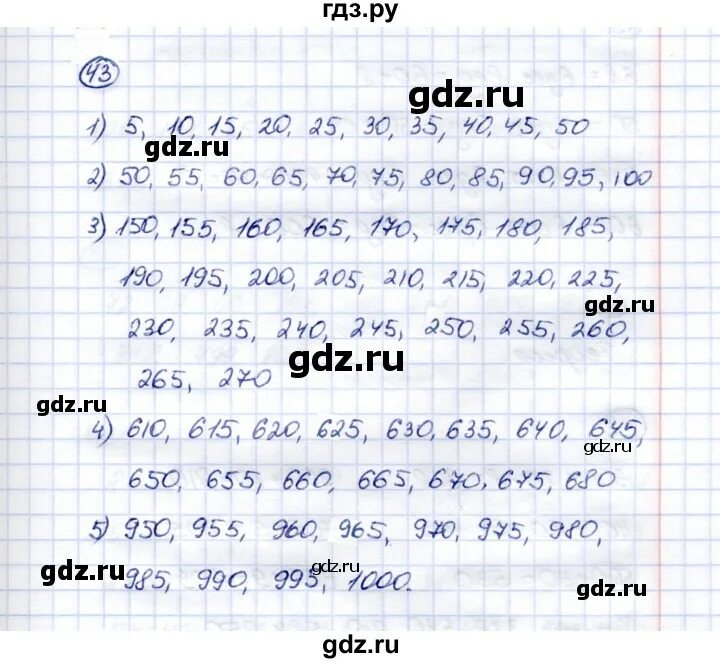 гдз.ру
43
gdz.ru
1) 5, 10, 15, 20, 25, 30, 35, 40, 45, 50
gdz.ru
2) 50, 55, 60, 65, 70, 75, 80, 85, 90, 95, 100
3) 150, 155, 160, 165, 170, 175, 180, 185,
190, 195, 200, 205, 210, 215, 220, 225,
gdz.ru
230, 235, 240, 245, 250, 255, 260,
gdz.ru
265, 270
gdz.ru
4) 610, 615, 620, 625, 630, 635, 640, 645,
gdz.ru
650, 655, 660, 665, 670, 675, 680
5) 950, 955, 960, 965, 970, 975, 980,
gdz.ru
gdz.ru
985, 990, 995, 1000.
gdz.ru
gdz.ru